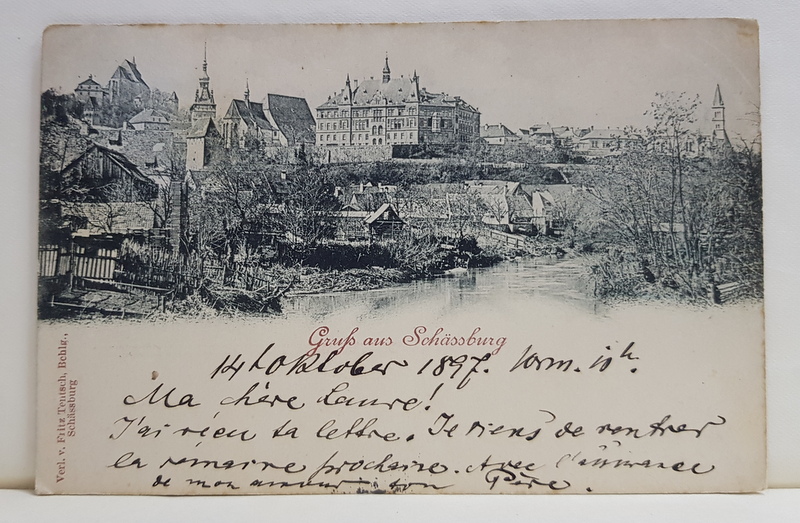 Gruß aus Schässburg
14t Oktober 1897. Vorm. 10h.
Ma chère Laure!
J'ai réçu ta lettre. Je viens de rentrer
la semaine prochaine. Avec l'assurance
de mon amour ton Père.
Verl. v. Fritz Teutsch, Bchlg.,
Schässburg